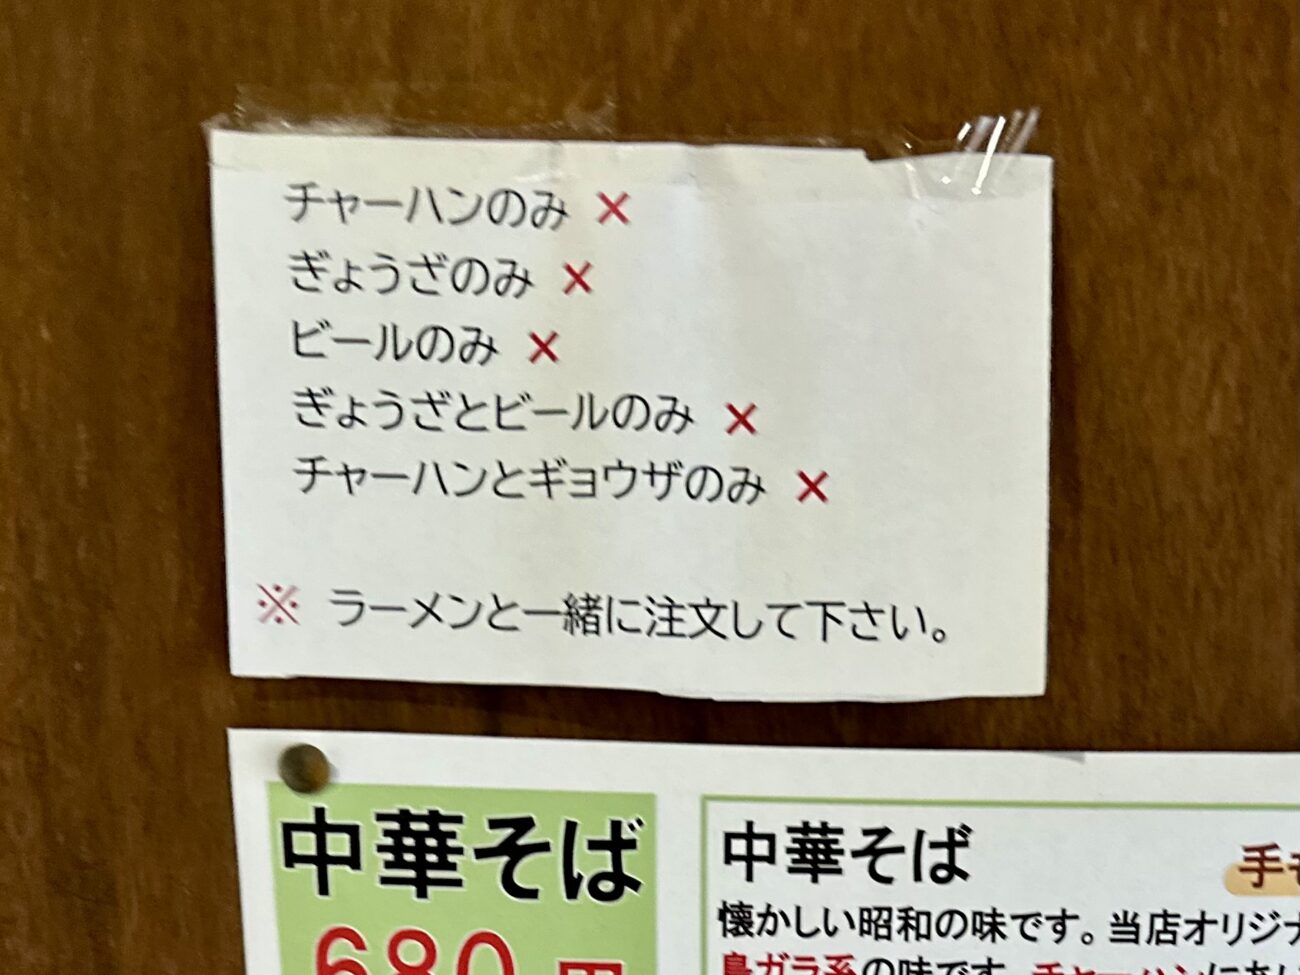 チャーハンのみ ×
ぎょうざのみ ×
ビールのみ ×
ぎょうざとビールのみ ×
チャーハンとギョウザのみ ×
※ ラーメンと一緒に注文して下さい。
中華そば
680円
中華そば
手モ
懐かしい昭和の味です。当店オリジナ
鳥ガラ系の味です。チャーハンにあい